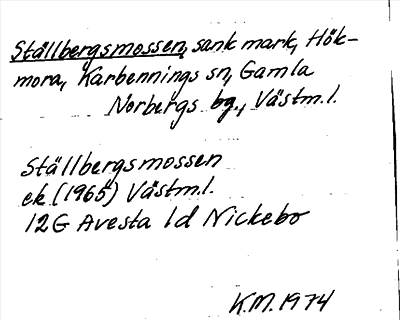 Ställbergsmossen, sank mark, Hök-
mora, Karbennings sn, Gamla
Norbergs bg., Västm.l.
Ställbergsmossen
ek. (1965) Västm.l.
12G Avesta 1d Nickebo
K.M. 1974